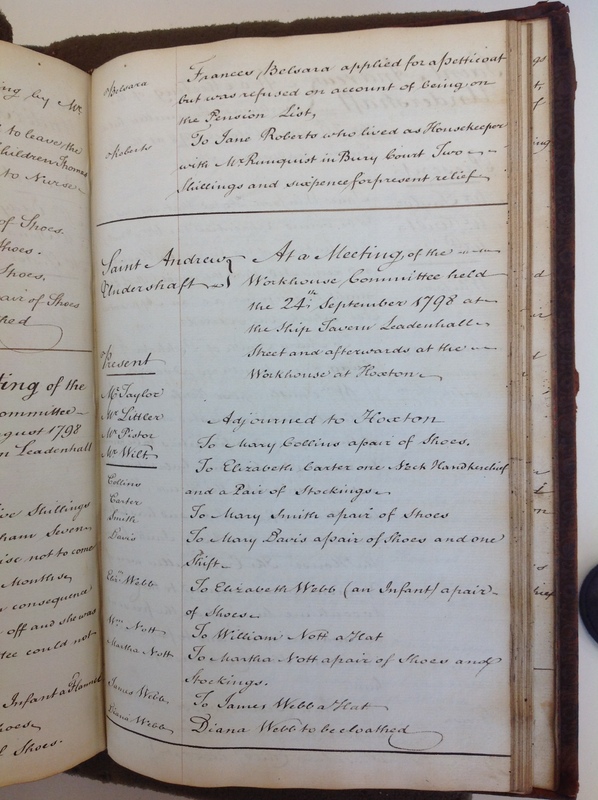 ing by Mr
to leave the
Children Thomas
to Nurse
of Shoes.
Shoes.
Shoes,
pair of Shoes
hed
ting of the
ommittee
ugust 1798
n Leadenhall
ive Shillings
ham Seven
ise not to come
Months
consequence
off and she was
tee could not
Infant a Flannel
hoes
of Shoes.
Belsara
Frances Belsara applied for a petticoat
but was refused on account of being on
the Pension List,
Roberts
To Jane Roberts who lived as Housekeeper
with Mr Runquist in Bury Court Two
Shillings and sixpence for present relief
Saint Andrew
Undershaft
At a Meeting of the
Workhouse Committee held
the 24th September 1798 at
the Ship Tavern Leadenhall
Street and afterwards at the
Workhouse at Hoxton
Present
Mr Taylor
Mr Littler
Mr Pistor
Mr Wilt
Adjourned to Hoxton
Collins
To Mary Collins a pair of Shoes,
Carter
To Elizabeth Carter one Neck Handkerchief
and a Pair of Stockings
Smith
To Mary Smith a pair of Shoes
Davis
To Mary Davis a pair of Shoes and one
Shift
Eliz Webb
To Elizabeth Webb (an Infant) a pair
of Shoes
Wm Nott
To William Nott a Hat
Martha Nott
To Martha Nott a pair of Shoes and
Stockings.
James Webb
To James Webb a Hat
Diana Webb
Diana Webb to be cloathed